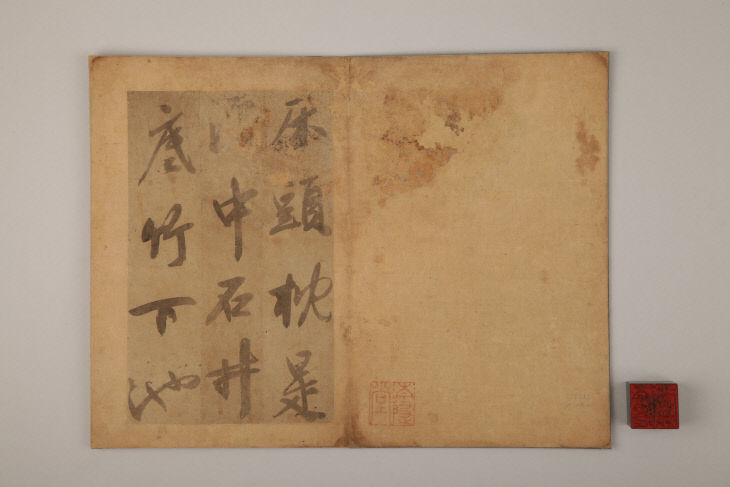 床頭枕是
中石井
底竹下池